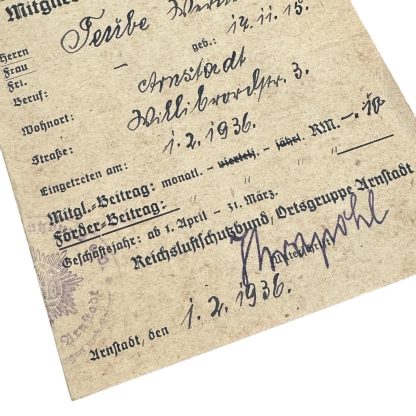 Mitglied
Herrn
Frau
Frl.
Teube Wern
geb.: 14.11.15.
Beruf: —
Wohnort: Arnstadt
Straße: Willibrordstr. 3.
Eingetreten am: 1.2.1936.
Mitgl.-Beitrag: monatl. – viertelj. – jährl. RM. —.10
Förder-Beitrag: " " "
Geschäftsjahr: ab 1. April – 31. März.
Reichsluftschutzbund, Ortsgruppe Arnstadt
Arnstadt, den 1.2.1936.
Arnstadt